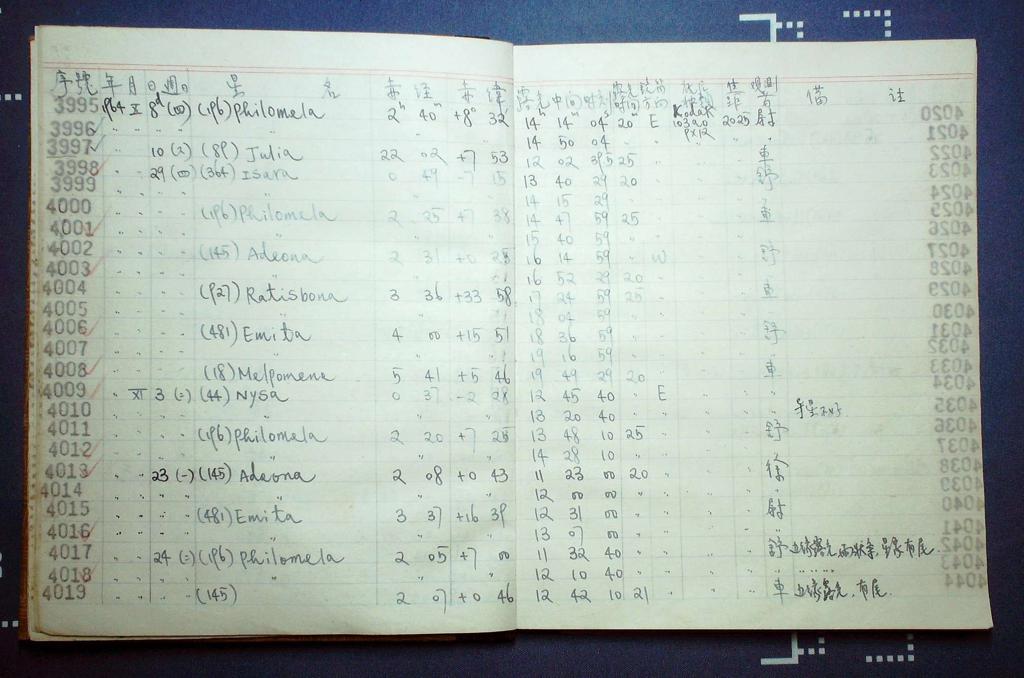 序號 年 月 日 週 星 名 赤 經 赤 緯 露光中間時刻 露光時間 鏡筒方向 底片種類 觀測者 備 註
3995 1964 X 8d (四) (196) Philomela 2h 40m +8° 32 14h 14m 04s 20m E Kodak 103aO 2025
3996 " " " " " 14 50 04
3997 " 10 (六) (89) Julia 22 02 +7 53 12 02 25 車
3998 " 29 (四) (364) Isara 0 49 -7 15 13 40 29 20 舒
3999 " " " " 14 15 29
4000 " " " (196) Philomela 2 25 +7 38 14 47 59 25 車
4001 " " " " 15 40 59
4002 " " " (145) Adeona 2 31 +0 28 16 14 59 W 舒
4003 " " " " 16 52 29 20
4004 " " " (927) Ratisbona 3 36 +33 58 17 24 59 25 車
4005 " " " " 18 04 59
4006 " " " (481) Emita 4 00 +15 51 18 36 59 舒
4007 " " " " 19 16 59
4008 " " " (18) Melpomene 5 41 +5 46 19 49 29 20 車
4009 " XI 3 (二) (44) Nysa 0 37 -2 28 12 45 40 " E
4010 " " " " 13 20 40
4011 " " " (196) Philomela 2 20 +7 25 13 48 10 25 舒
4012 " " " " 14 28 10
4013 " " 23 (一) (145) Adeona 2 08 +0 43 11 23 00 20 徐
4014 " " " " 12 00 00
4015 " " " (481) Emita 3 37 +16 39 12 31 00
4016 " " " " 13 07 00
4017 " " 24 (二) (196) Philomela 2 05 +7 00 11 32 40 舒
4018 " " " " 12 10 40
4019 " " " (145) 2 07 +0 46 12 42 10 21 車
4020
4021
4022
4023
4024
4025
4026
4027
4028
4029
4030
4031
4032
4033
4034
4035
4036
4037
4038
4039
4040
4041
4042
4043
4044